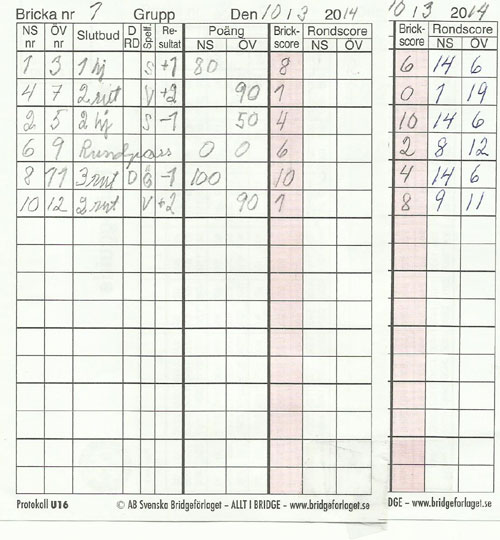 Bricka nr 7 Grupp Den 10 / 3 2014 10 / 3 2014
NS nr ÖV nr Slutbud D RD Spelf. Re-sultat Poäng NS ÖV Brick-score Rondscore NS ÖV Brick-score Rondscore NS ÖV
1 3 1 hj S +1 80 8 6 14 6
4 7 2 rut V +2 90 1 0 1 19
2 5 2 hj S -1 50 4 10 14 6
6 9 Rundpass 0 0 6 2 8 12
8 11 3 rut D Ö -1 100 10 4 14 6
10 12 2 rut V +2 90 1 8 9 11
Protokoll U16 © AB Svenska Bridgeförlaget – ALLT I BRIDGE – www.bridgeforlaget.se DGE – www.bridgeforlaget.se